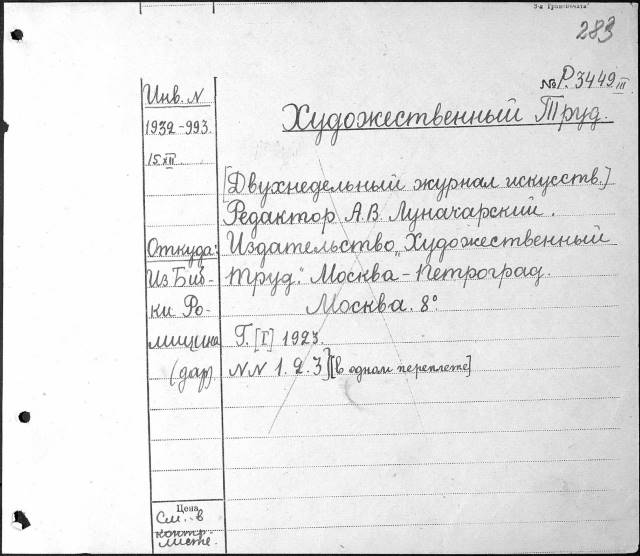 283
№ Р.3449 III
Инв. N
1932-993.
15 XII
Художественный Труд.
[Двухнедельный журнал искусств.]
Редактор А.В. Луначарский.
Откуда:
Из Биб-
ки Ро-
мицина
(дар).
Издательство „Художественный
Труд." Москва-Петроград.
Москва. 8°
Г. [I] 1923.
NN 1. 2. 3} [в одном переплете]
Цена
См. в
контр.
листе.